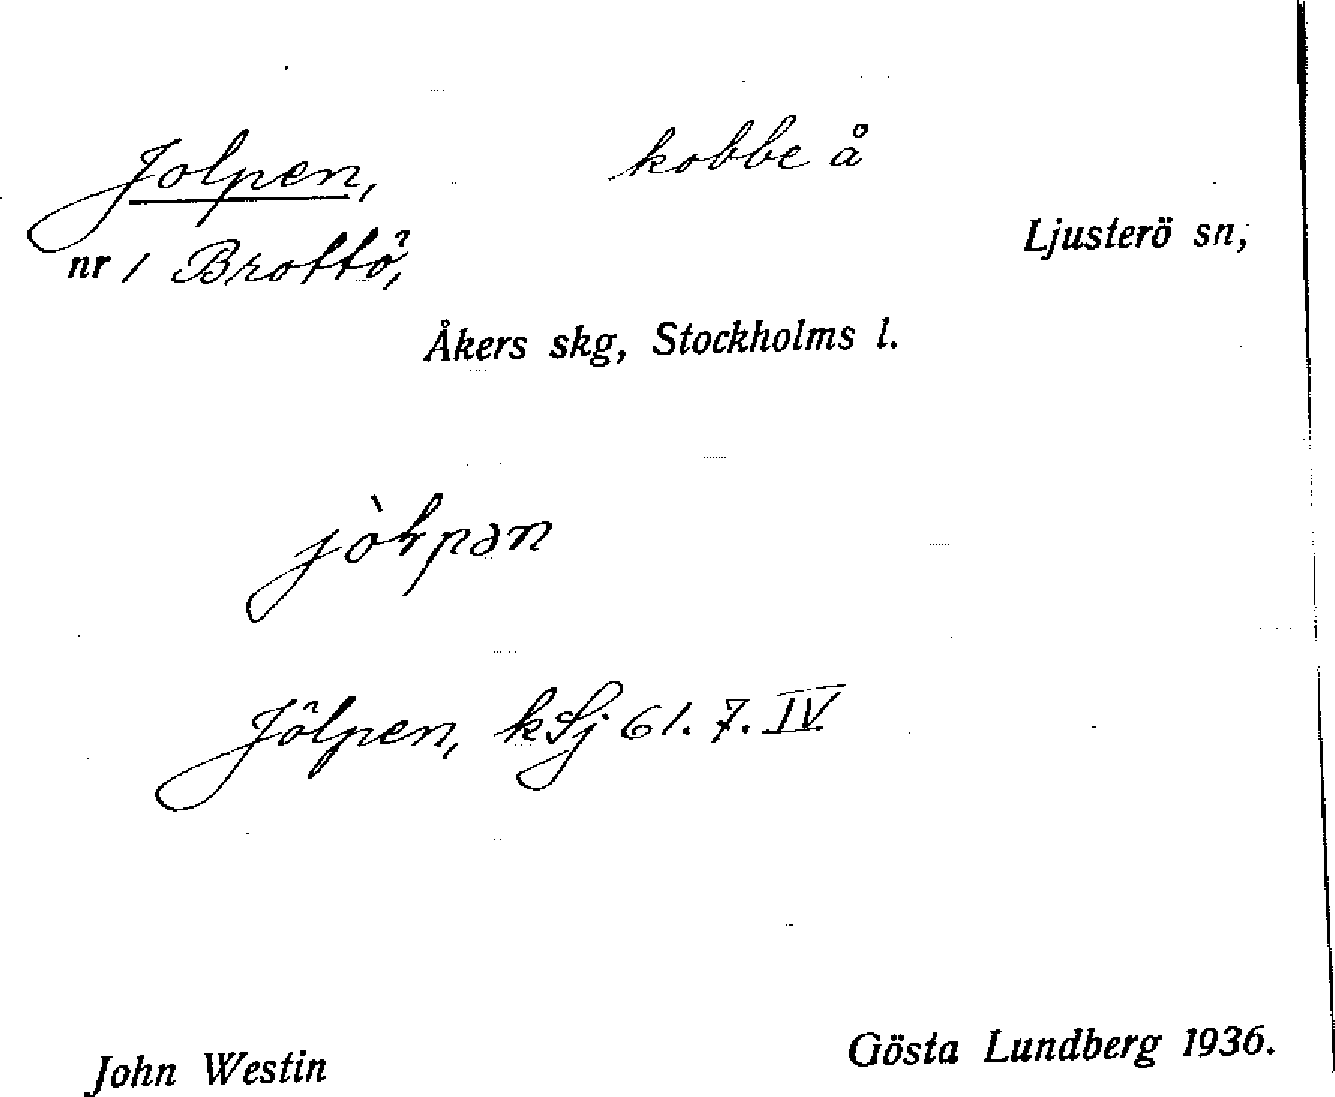 Jolpen, kobbe å
Ljusterö sn,
nr 1 Brottö,
Åkers skg, Stockholms l.
jòlpən
Jölpen, kSj 61. 7. IV.
John Westin
Gösta Lundberg 1936.